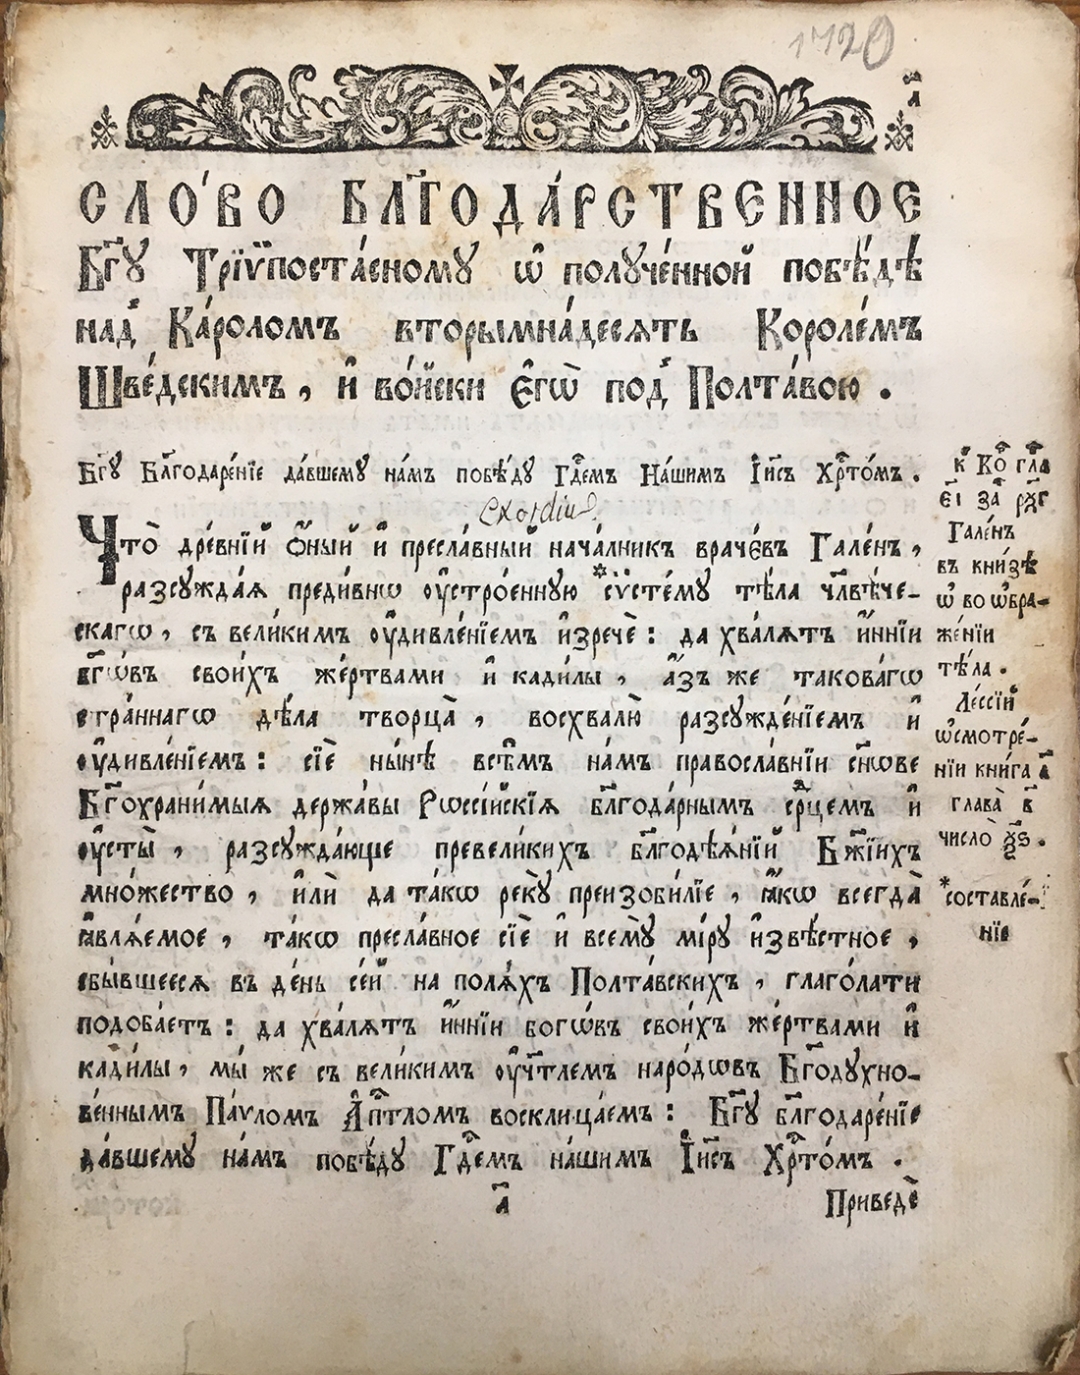 1720
а҃
СЛО́ВО БЛГ҃ОДА́РСТВЕННОЕ
Бг҃ꙋ Трїѵпоста́сномꙋ ѡ҆ полꙋче́нной побѣ́дѣ
над̾ Ка́роломъ вторымна́десять Короле́мъ
Шве́дскимъ, и҆ во́йски є҆гѡ̀ под̾ Полта́вою.
Бг҃ꙋ Блг҃одаре́нїе да́вшемꙋ на́мъ побѣ́дꙋ Гдⷭ҇емъ На́шимъ І҆и҃съ Хрⷭ҇то́мъ.
Exordiu
Что̀ дре́внїй ѻ҆́ный и҆ пресла́вный нача́лникъ враче́въ Гале́нъ,
разсꙋжда́ѧ преди́внѡ оу҆стро́еннꙋю *сѵсте́мꙋ тѣ́ла чл҃вѣ́че-
скагѡ, съ вели́кимъ оу҆дивле́нїемъ и҆зречѐ: да хва́лѧтъ и҆́ннїи
бг҃ѡ́въ свои́хъ же́ртвами и҆ кади́лы, а҆́зъ же такова́гѡ
стра́ннагѡ дѣ́ла творца̀, восхвалю̀ разсꙋжде́нїемъ и҆
оу҆дивле́нїемъ: сїѐ ны́нѣ всѣ̑мъ на́мъ правосла́внїи сн҃ове
Бг҃охрани́мыѧ держа́вы Рѡссі́йскїѧ блг҃ода́рнымъ срⷣцемъ и҆
оу҆сты̀, разсꙋжда́юще превели́кихъ блг҃одѣѧ́нїй Бж҃їихъ
мно́жество, и҆лѝ да та́кѡ рекꙋ̀ преизоби́лїе, ꙗ҆́кѡ всегда̀
ꙗ҆влѧ́емое, та́кѡ пресла́вное сїѐ и҆ всемꙋ̀ мі́рꙋ и҆звѣ́стное,
сбы́вшеесѧ въ де́нь се́й на полѧ́хъ Полта́вскихъ, глаго́лати
подоба́етъ: да хва́лѧтъ и҆́ннїи богѡ́въ свои́хъ же́ртвами и҆
кади́лы, мы́ же съ вели́кимъ оу҆чт҃лемъ наро́дѡвъ Бг҃одꙋхно-
ве́ннымъ Па́ѵломъ А҆пⷭ҇толомъ восклица́емъ: Бг҃ꙋ блг҃одаре́нїе
да́вшемꙋ на́мъ побѣ́дꙋ Гдⷭ҇емъ на́шимъ І҆и҃съ Хрⷭ҇то́мъ.
а҃
Приведѐ
к̾ Коⷬ҇ глⷡ҇а
є҃і заⷱ҇ рѯ҃г
Гале́нъ
въ кни́зѣ
ѡ҆ во ѡ҆бра-
же́нїи
тѣ́ла.
Ле́ссїй
ѡ҆ смотре́-
нїи кни́га а҃
глава̀ в҃
число̀ ѯ҃ѕ.
*составле́-
нїе